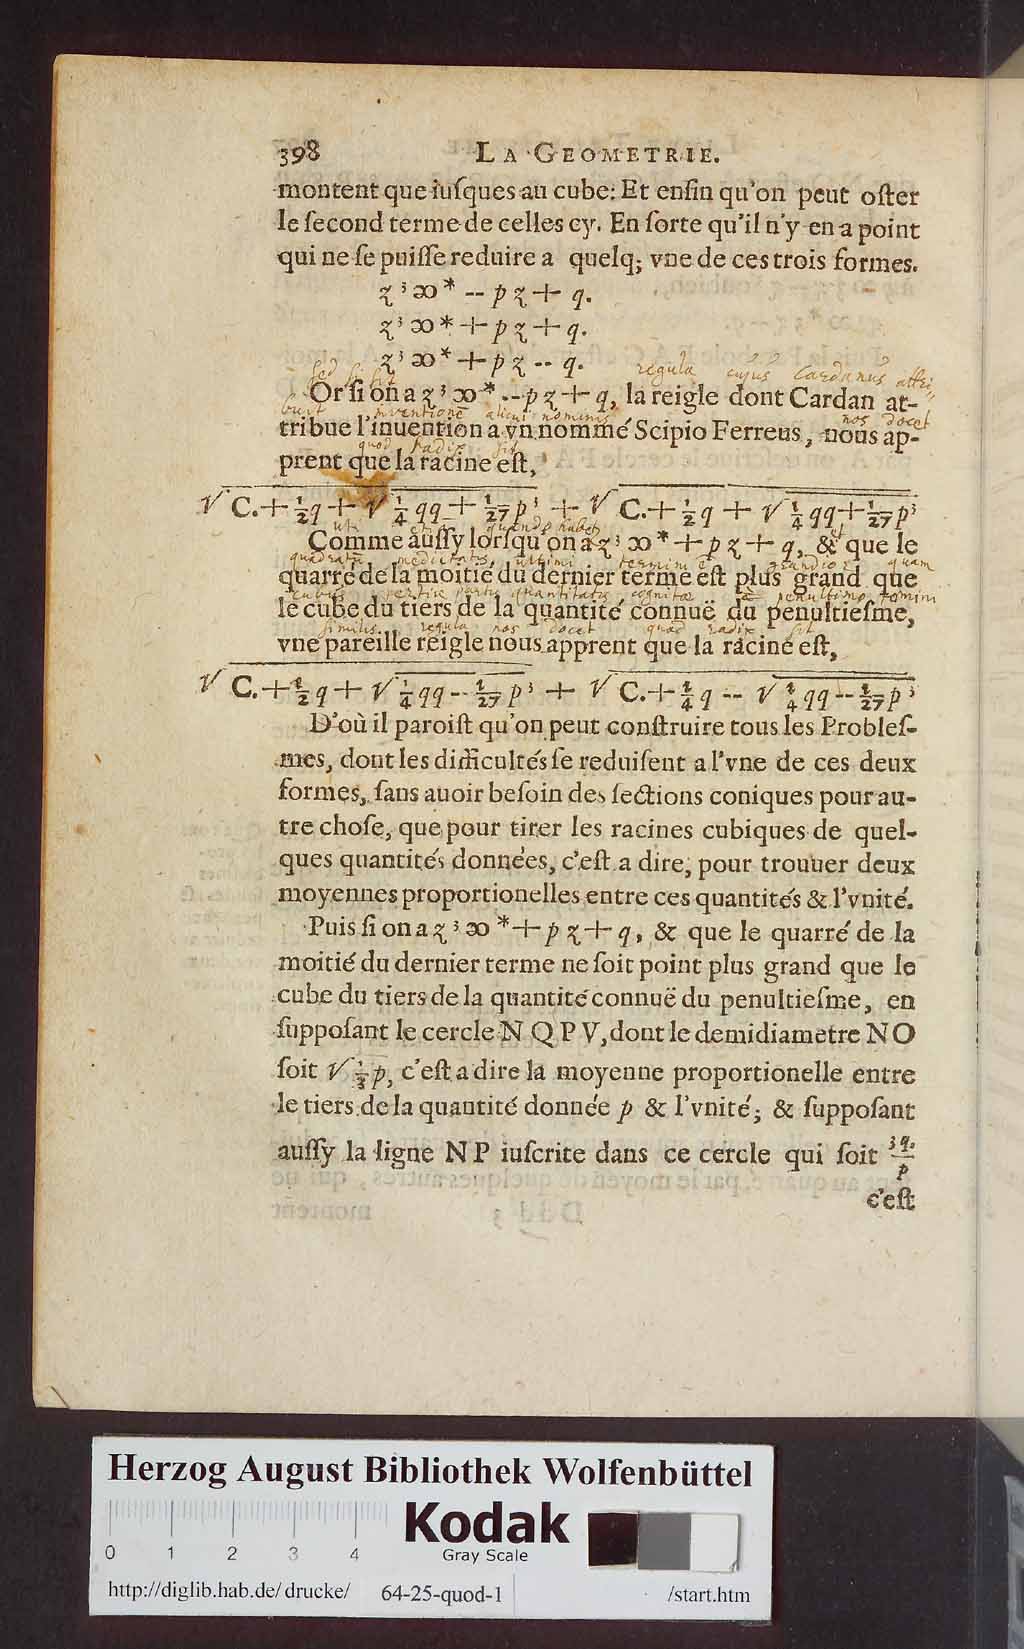 398 LA GEOMETRIE.
montent que iuſques au cube: Et enfin qu'on peut oſter
le ſecond terme de celles cy. En ſorte qu'il n'y en a point
qui ne ſe puiſſe reduire a quelq; vne de ces trois formes.
z³ ꝏ * -- p z + q.
z³ ꝏ * + p z + q.
z³ ꝏ * + p z -- q.
sed si sit regula cujus Cardanus attri-
Or ſi on a z³ ꝏ * -- p z + q, la reigle dont Cardan at-
buit inventionē alicui nominis nos docet
tribue l'inuention a vn nommé Scipio Ferreus, nous ap-
quod radix sit
prent que la racine eſt,
√ C. + ½ q + √ ¼ qq + 1/27 p³ + √ C. + ½ q + √ ¼ qq + 1/27 p³
uti etiā quando habet et
Comme auſſy lorſqu'on a z³ ꝏ * + p z + q, & que le
quadratū medietatis ultimi termini ē grandior quam
quarré de la moitié du dernier terme eſt plus grand que
cubus tertiæ partis quantitatis cognitæ penultimo termini
le cube du tiers de la quantité connuë du penultieſme,
similis regula nos docet quod radix sit
vne pareille reigle nous apprent que la racine eſt,
√ C. + ½ q + √ ¼ qq -- 1/27 p³ + √ C. + ¼ q -- √ ¼ qq -- 1/27 p³
D'où il paroiſt qu'on peut conſtruire tous les Probleſ-
mes, dont les difficultés ſe reduiſent a l'vne de ces deux
formes, ſans auoir beſoin des ſections coniques pour au-
tre choſe, que pour tirer les racines cubiques de quel-
ques quantités données, c'eſt a dire, pour trouuer deux
moyennes proportionelles entre ces quantités & l'vnité.
Puis ſi on a z³ ꝏ * + p z + q, & que le quarré de la
moitié du dernier terme ne ſoit point plus grand que le
cube du tiers de la quantité connuë du penultieſme, en
ſuppoſant le cercle N Q P V, dont le demidiametre N O
ſoit √ ⅓ p, c'eſt a dire la moyenne proportionelle entre
le tiers de la quantité donnée p & l'vnité; & ſuppoſant
auſſy la ligne N P iuſcrite dans ce cercle qui ſoit 3q./p
c'eſt
Herzog August Bibliothek Wolfenbüttel
Kodak
Gray Scale
0 1 2 3 4
http://diglib.hab.de/drucke/ 64-25-quod-1 /start.htm